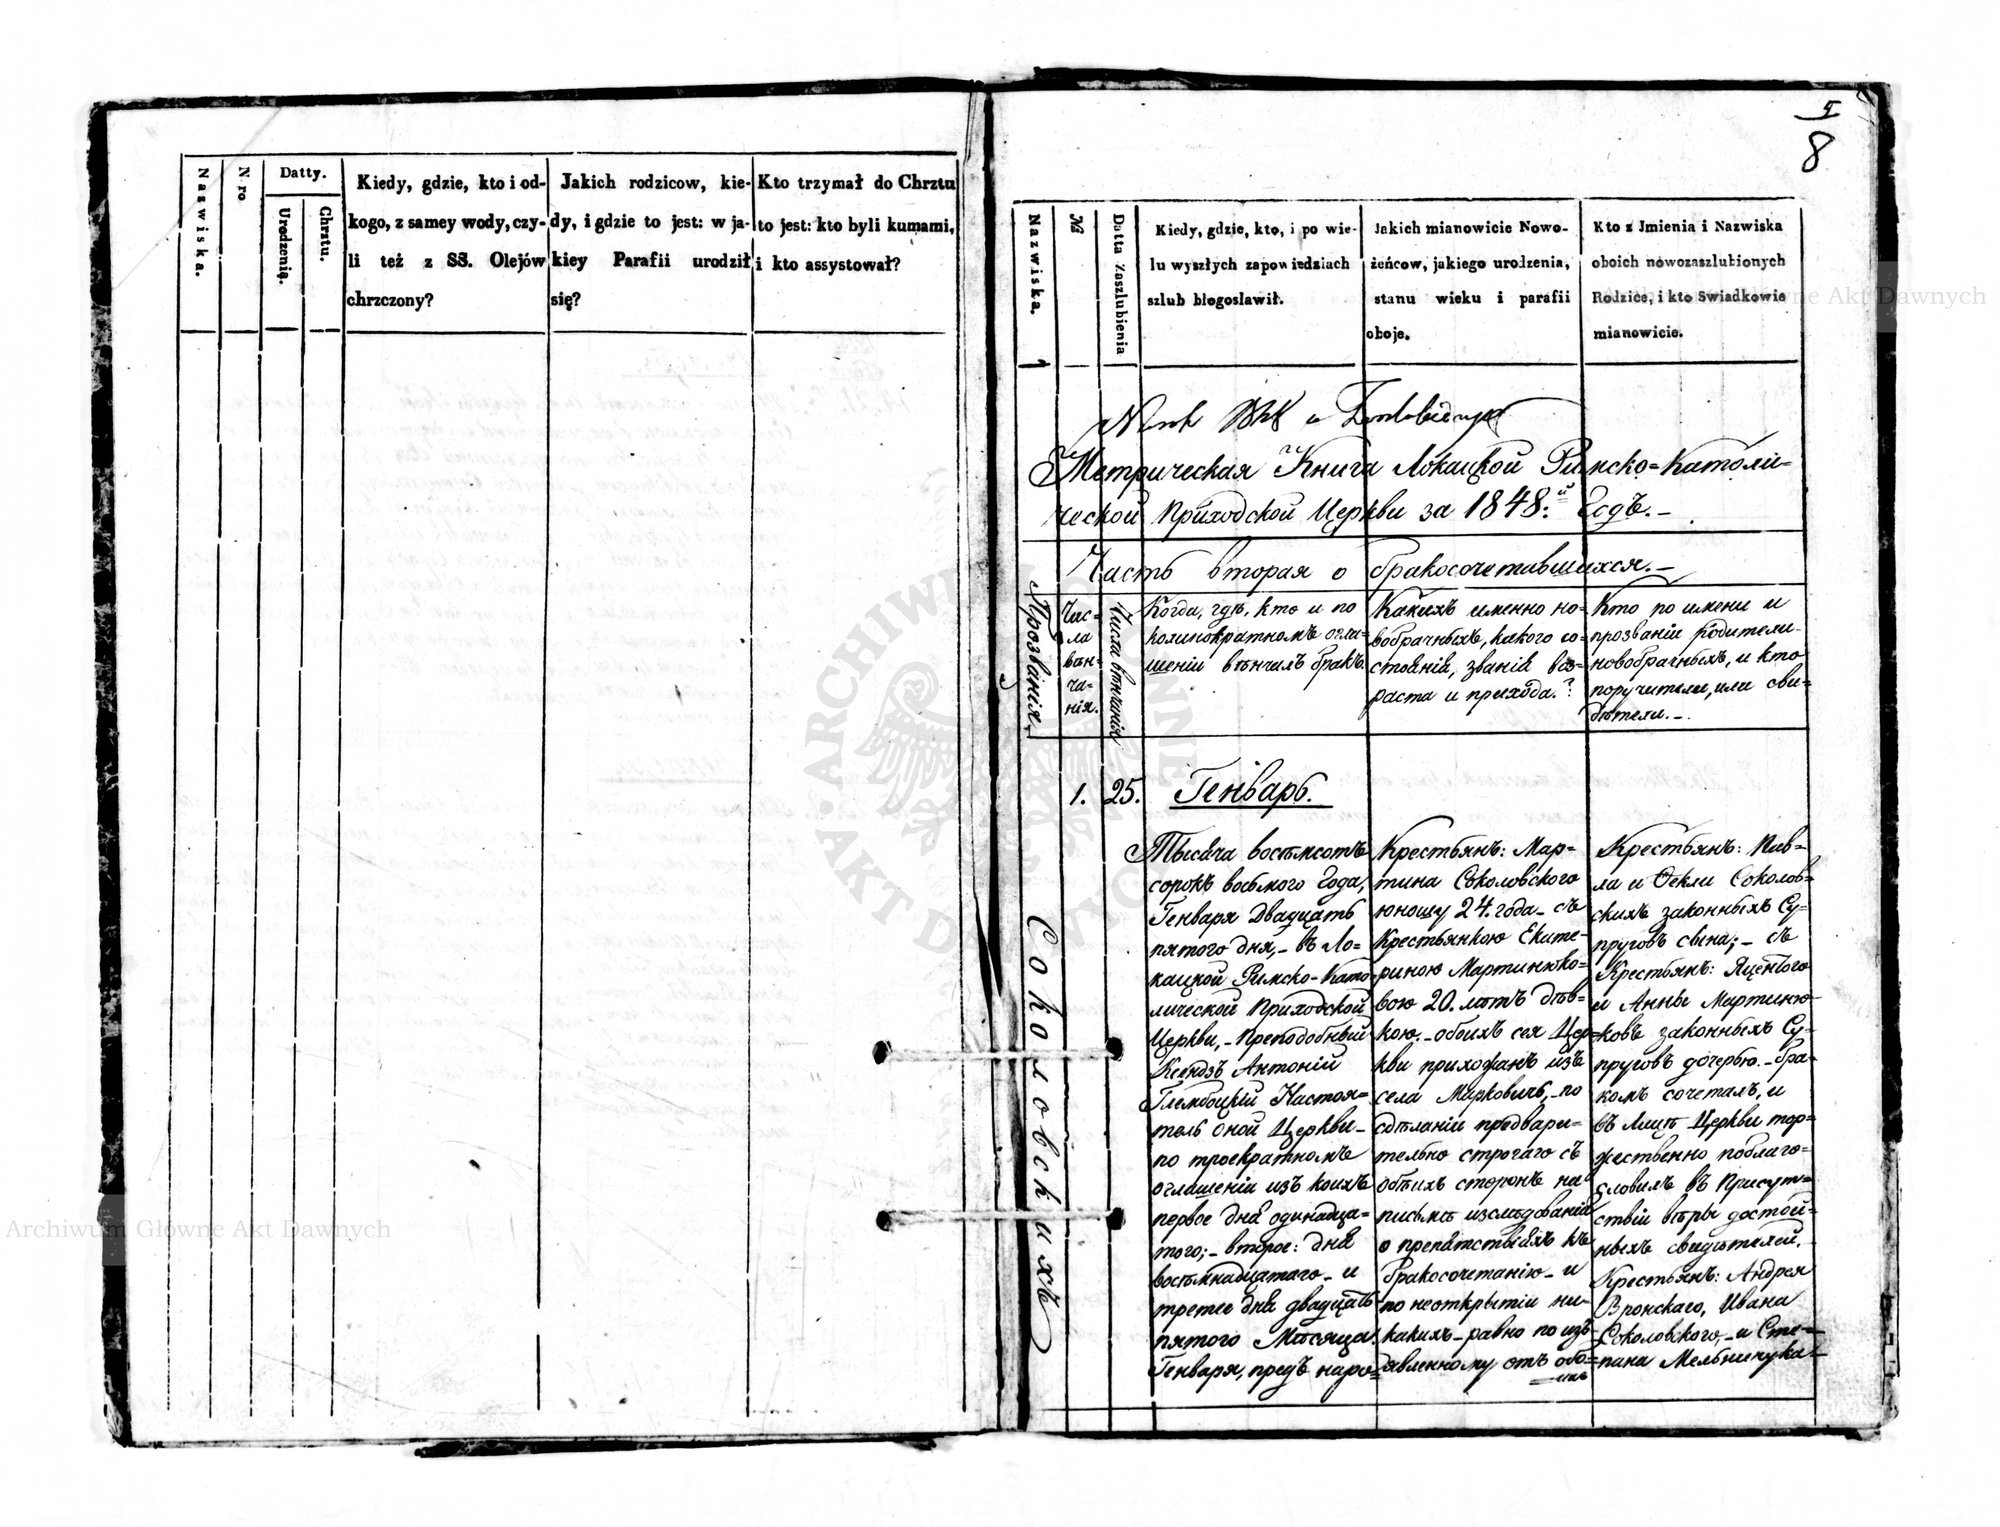 Nazwiska.
Nro
Datty.
Urodzenia.
Chrztu.
Kiedy, gdzie, kto i od-
kogo, z samey wody, czy-
li też z SS. Olejów
chrzczony?
Jakich rodzicow, kie-
dy, i gdzie to jest: w ja-
kiey Parafii urodził
się?
Kto trzymał do Chrztu
to jest: kto byli kumami,
i kto assystował?
5
8
Nazwiska.
№
Datta Zaszlubienia
Kiedy, gdzie, kto, i po wie-
lu wyszłych zapowiedziach
szlub blogoslawił.
Jakich mianowicie Nowo-
żeńcow, jakiego urodzenia,
stanu wieku i parafii
oboje.
Kto z Jmienia i Nazwiska
oboich nowozaszlubionych
Rodzice, i kto Swiadkowie
mianowicie.
Метрическая Книга Локацкой Римско=Католи=
ческой Приходской Церкви за 1848:й Годъ.–
Часть вторая о бракосочетавшихся.–
Прозванія.
Чис=
ла
вѣн=
ча=
нія.
Числа вѣнчанія
Когда, гдѣ, кто и по
коликократномъ огла=
шеніи вѣнчилъ бракъ.
Какихъ именно но=
вобрачныхъ, какого со=
стоянія, званія воз=
раста и прихода.?
Кто по имени и
прозванію родители
новобрачныхъ, и кто
поручители, или сви=
дѣтели.–
1.
25.
Генварь.
Соколовскихъ
Тысяча восѣмсотъ
сорокъ восьмого Года,
Генваря Двадцать
пятого дня,– въ Ло=
кацкой Римско-Като
лической Приходской
Церкви,– Преподобный
Ксендзъ Антоній
Глембоцкій Настоя=
тель оной Церкви–
по троекратномъ
оглашеніи изъ коихъ
первое дня одинадца=
того;– второе: дня
восѣмнадцатаго– и
третее дня двадцать
пятого Мѣсяца
Генваря, предъ наро=
Крестьянъ: Мар=
тина Соколовского
юношу 24. года– съ
Крестьянкою Екате=
риною Мартинюко=
вою 20. лѣтъ дѣв=
кою.– обоихъ сея Цер=
кви прихожанъ изъ
села Марковичь,– по
сдѣланіи предвари=
тельно строгаго съ
обѣихъ сторонъ на
письмѣ изслѣдованія
о препятствіяхъ къ
бракосочетанію– и
по неоткрытіи ни-
какихъ– равно по изъ
явленному отъ обо=
ихъ
Крестьянъ: Пав=
ла и Ѳекли Соколов=
скихъ законныхъ Су=
пруговъ сына;– съ
Крестьянъ: Яцентого
и Анны Мартиню=
ковъ законныхъ Су=
пруговъ дочерью.– бра=
комъ сочеталъ, и
въ Лицѣ Церкви тор=
жественно поблаго=
словилъ въ Присут=
ствіи вѣры достой=
ныхъ свидѣтелей.
Крестьянъ: Андрея
Вронскаго, Ивана
Соколовского– и Сте=
пана Мельничука–
ARCHIWUM GŁÓWNE AKT DAWNYCH
Archiwum Główne Akt Dawnych
Archiwum Główne Akt Dawnych